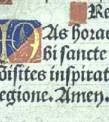 Re
As horae
bi sancte
disites inspirat
regione. Amen.